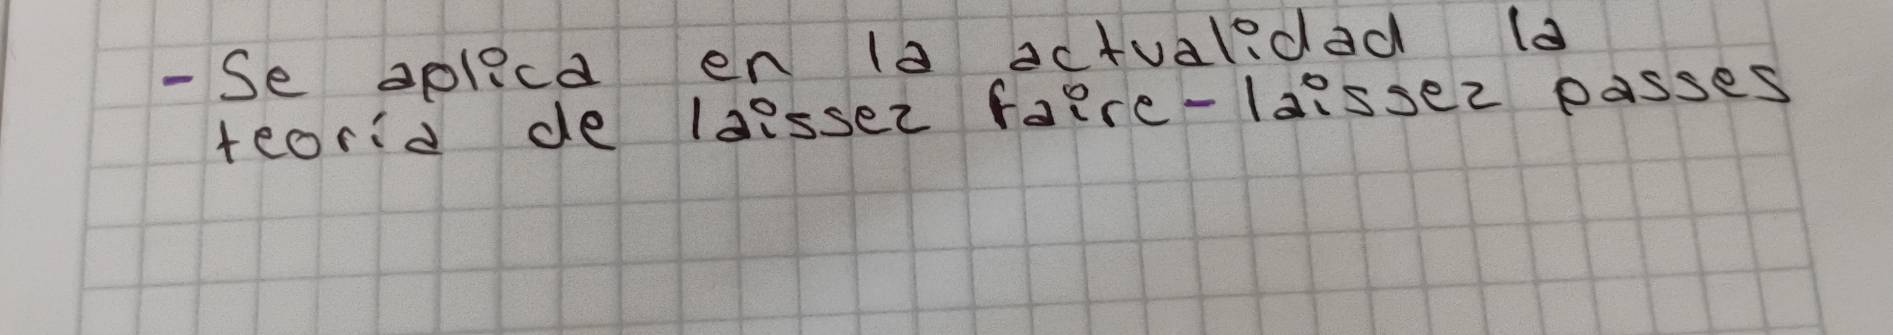 - Se aplica en la actualidad la
teoría de laissez faire - laissez passes